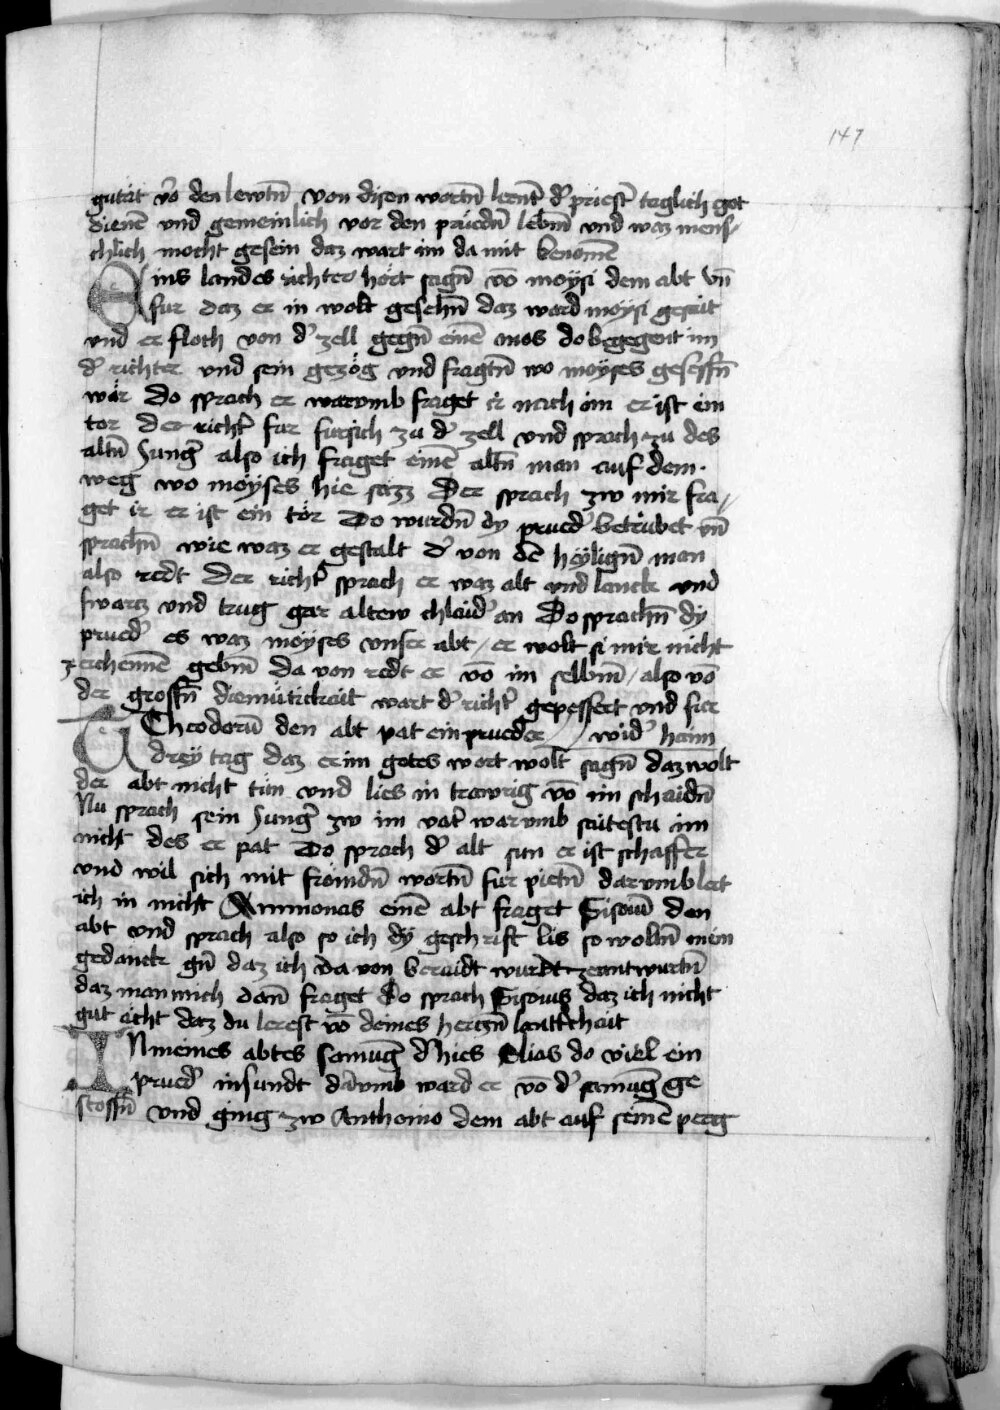 147
gutät vō den lewtn̄ von disen wortn̄ lernt̄ d᾽ priest᾽ teglich got
dienē und gemeinlich vor den prüedn̄ lebm̄ und waz mens/
chlich mocht gesein daz wart im da mit benomē
Eins landes richter hört sagn̄ vō moysi dem abt vn̄
fur daz er in wolt gesehn̄ daz ward moysi gesait
und er floch von d᾽ zell gegn̄ einē mos do begegent im
d᾽ richter und sein gezög und fragtn̄ wo moyses gesessn̄
wär Do sprach er warumb fraget ir nach im er ist ein
tor Der richt᾽ fur fursich zu d᾽ zell und sprach zu des
altn̄ Jung᾽ also ich fraget einē altn̄ man auf dem
weg wo moyses hie säzz Der sprach zw mir fra/
get ir er ist ein tör Do wurdn̄ dy prued᾽ betrubet vn̄
sprachn̄ wie waz er gestalt d᾽ von dē heylign̄ man
also redt Der richt᾽ sprach er waz alt und lanck und
swarcz und trug gar altew chlaid᾽ an Do sprachn̄ dy
prued᾽ es waz moyses unser abt / er wolt si mir nicht
zerchennē gebm̄ da von redt er vō im selbm̄ / also vō
der grossn̄ diemütickait wart d᾽ richt᾽ gepessert und fur
Theodorū den abt pat ein prueder // wid᾽ haim
drey tag daz er im gotes wort wolt sagn̄ daz wolt
der abt nicht tün und lies in trawrig vō im schaidn̄
Nu sprach sein Jung᾽ zw im vat᾽ warumb säitestu im
nicht des er pat Do sprach d᾽ alt sun er ist schaffer
und wil sich mit frömdn̄ wortn̄ fur pietn̄ darumb lert
ich in nicht Ammonas einē abt fraget Sisoim̄ den
abt und sprach also so ich dy geschrift lis so woltn̄ mein
gedanck gn̄ daz ich da von beraidt wurdt zeantwurtn̄
daz man mich dan̄ fraget Do sprach Sisoius daz ich nicht
gut acht daz du lerest vō deines herczn̄ lautt᾽chait
In meines abtes samūg d᾽ hies Elias do viel ein
prued᾽ in sundt darumb ward er vō d᾽ samūg ge
stossn̄ und ging zw Anthonio dem abt auf seinē perg